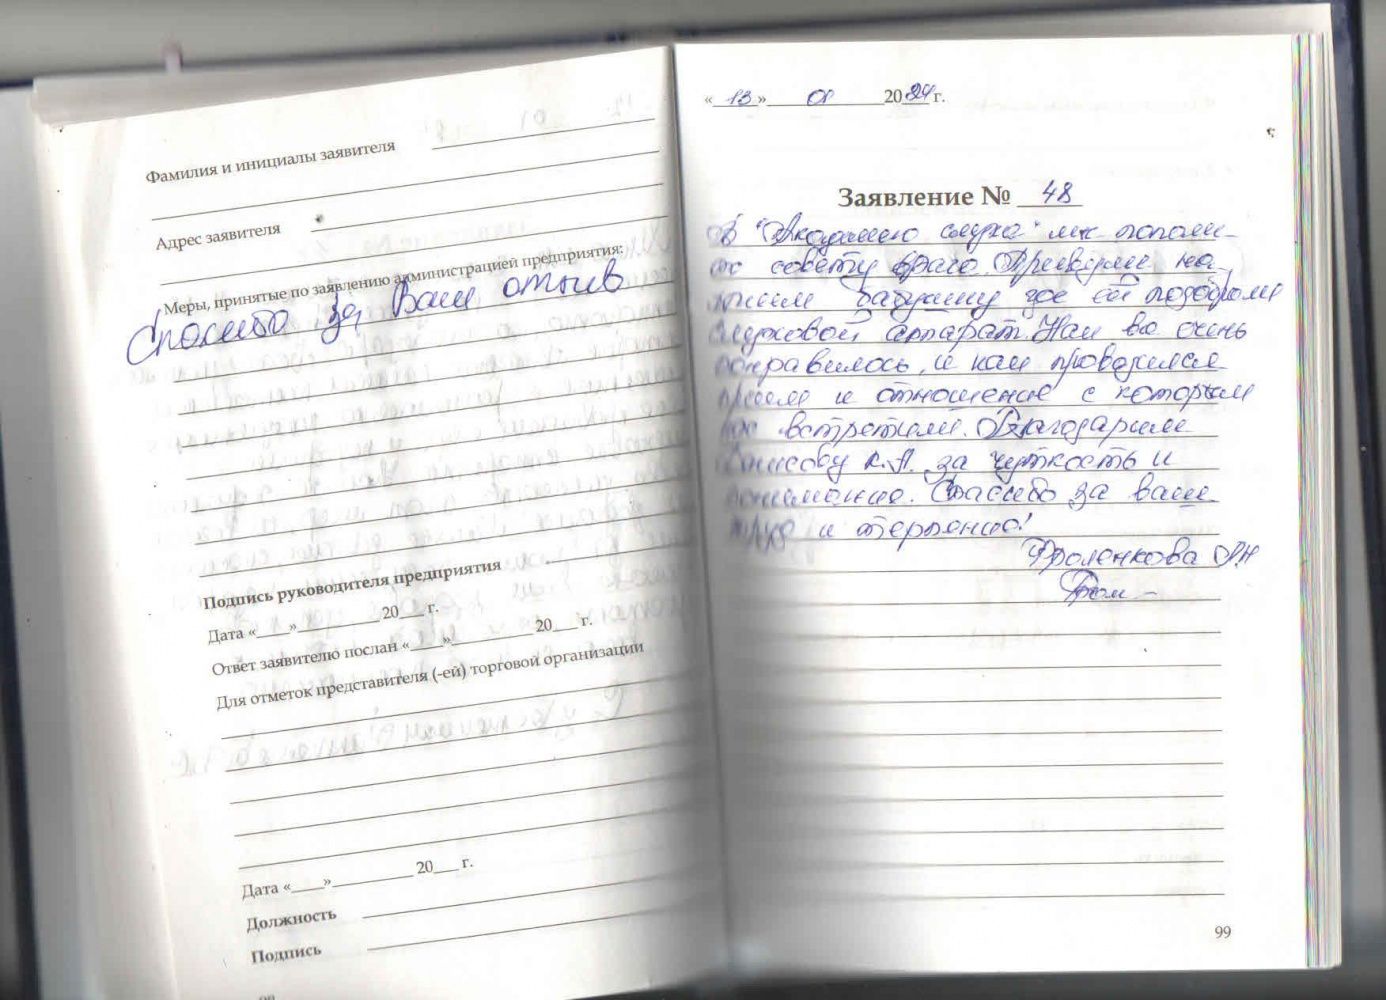 Фамилия и инициалы заявителя
Адрес заявителя
Меры, принятые по заявлению администрацией предприятия:
Спасибо за Ваш отзыв
Подпись руководителя предприятия
Дата «____»__________ 20___ г.
Ответ заявителю послан «____»__________ 20___ г.
Для отметок представителя (-ей) торговой организации
Дата «____»__________ 20___ г.
Должность
Подпись
« 13 » 01 2024 г.
Заявление № 48
В "Академию слуха" мы попали
по совету врача. Привезли на
прием бабушку где ей подобрали
слуховой аппарат. Нам все очень
понравилось, и как проводился
прием и отношение с которым
нас встретили. Благодарим
Денисову К.А. за чуткость и
понимание. Спасибо за ваш
труд и терпение!
Фроленкова О.Н
99